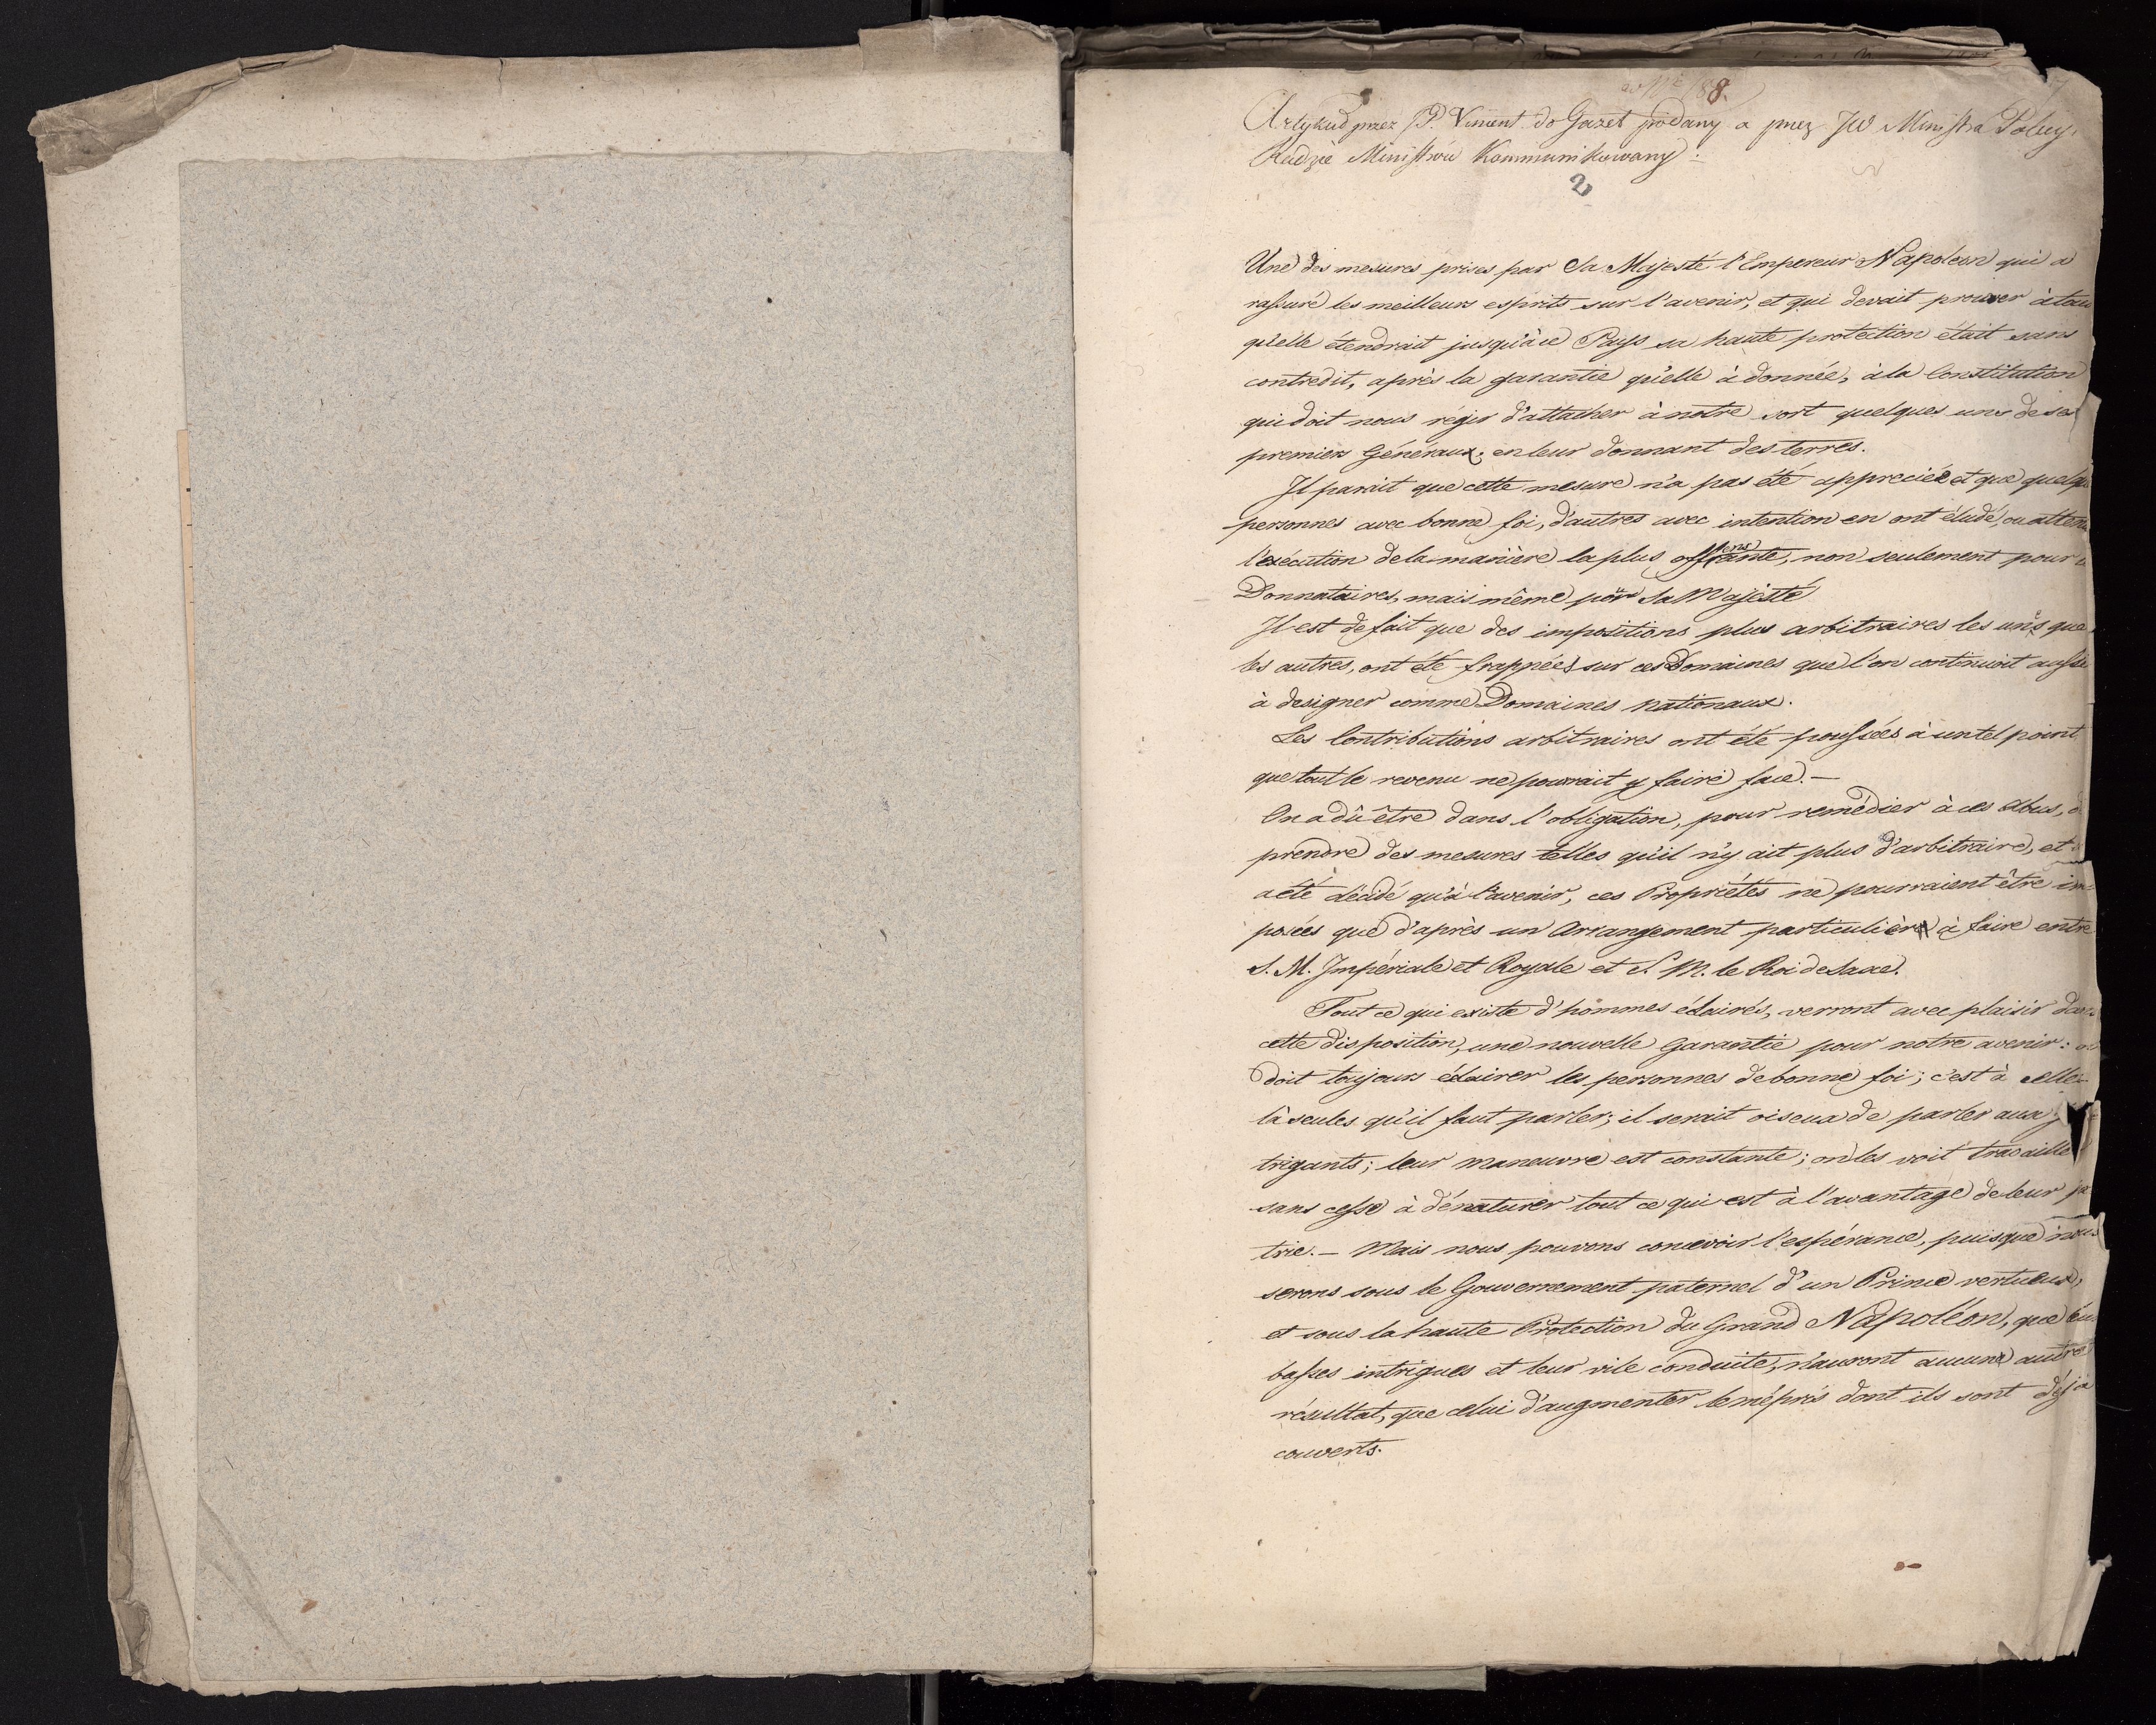 ad N 188.
Artykuł przez P. Vincent do Gazet podany a przez JW Ministra Policyi
Radzie Ministrów Kommunikowany:
2
Une des mesures prises par Sa Majesté l'Empereur Napoléon qui a
rassuré les meilleurs esprits sur l'avenir, et qui devait prouver à tous
qu'elle étendrait jusqu'à ce Pays sa haute protection était sans
contredit, après la garantie qu'elle à donnée, à la Constitution
qui doit nous régir d'attacher à notre sort quelques uns de ses
premiers Généraux, en leur donnant des terres.
Il parait que cette mesure n'a pas été appreciée et que quelqu
personnes avec bonne foi, d'autres avec intention en ont éludé, ou
l'exécution de la manière la plus offensante, non seulement pour
Donnataires, mais même pour Sa Majésté
Il est de fait que des impositions plus arbitraires les unes que
les autres, ont été frappées sur ces Domaines que l'on continuoit aussi
à designer comme Domaines nationaux.
Les Contributions arbitraires ont été poussées à un tel point
que tout le revenu ne pouvait y faire face.—
On a dû être dans l'obligation, pour remédier à ces Abus,
prendre des mesures telles qu'il n'y ait plus d'arbitraire, et
a été décidé qu'à l'avenir, ces Propriétés ne pourraient être im-
posées que d'après un Arrangement particulier à faire entre
S. M. Impériale et Royale et S. M. le Roi de Saxe.
Tout ce qui existe d'hommes éclairés, verront avec plaisir dans
cette disposition, une nouvelle Garantie pour notre avenir: on
doit toujours éclairer les personnes de bonne foi; c'est à celles-
là seules qu'il faut parler; il serait oiseux de parler aux
trigants; leur maneuvre est constante; on les voit travailler
sans cesse à dénaturer tout ce qui est à l'avantage de leur pa
trie.— Mais nous pouvons concevoir l'espérance, puisque nous
serons sous le Gouvernement paternel d'un Prince vertueux,
et sous la haute Protection du Grand Napoléon, que leurs
basses intrigues et leur vile conduite, n'auront aucun autre
résultat, que celui d'augmenter le mépris dont ils sont déjà
couverts.